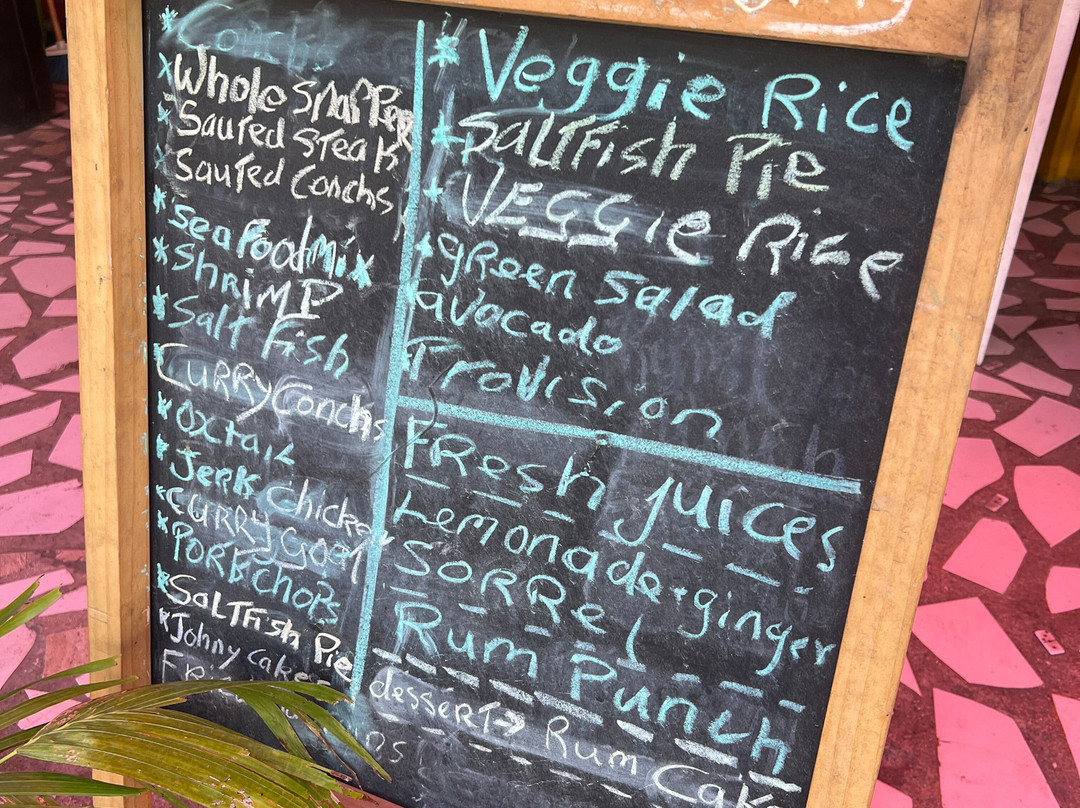 Conchs
Whole Snapper
Sauted Steak
Sauted Conchs
Seafood Mix
ShriMP
Salt Fish
CURRY Conchs
Oxtail
Jerk Chicken
CURRY Goat
PORKChops
SaLTFish Pie
Johny Cakes
Veggie Rice
SaLTFish Pie
VEGGie Rice
gReen Salad
avacado
Provision
FResh juices
Lemonade + ginger
SORRel
Rum Punch
dessert → Rum Cake